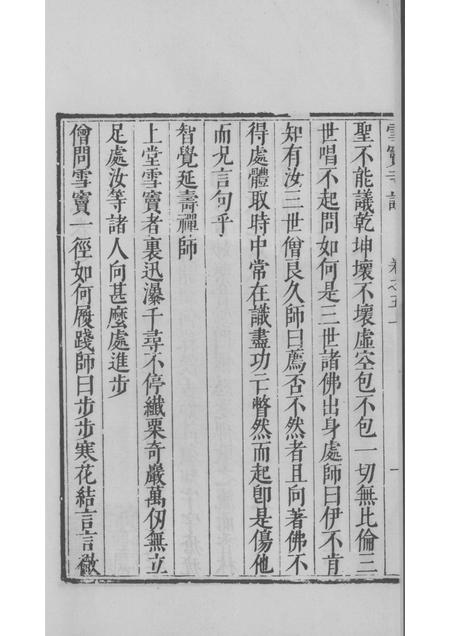 雪竇寺誌 卷之五 一
聖不能議乾坤壞不壞虛空包不包一切無比倫三
世唱不起問如何是三世諸佛出身處師曰伊不肯
知有汝三世僧良久師曰薦否不然者且向著佛不
得處體取時中常在識盡功亡瞥然而起卽是傷他
而況言句乎
智覺延壽禪師
上堂雪竇者裏迅瀑千尋不停纖粟奇巖萬仞無立
足處汝等諸人向甚麼處進步
僧問雪竇一徑如何履踐師曰步步寒花結言言徹